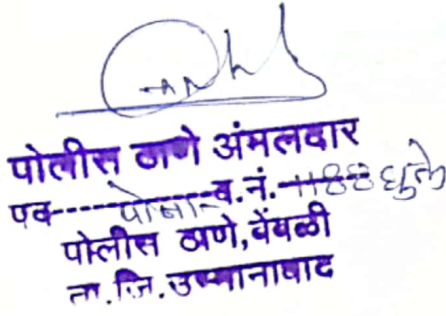 पोलीस ठाणे अंमलदार
पद-----पोना---ब.नं.-११88 घुले
पोलीस ठाणे, बेंबळी
ता.जि. उस्मानाबाद